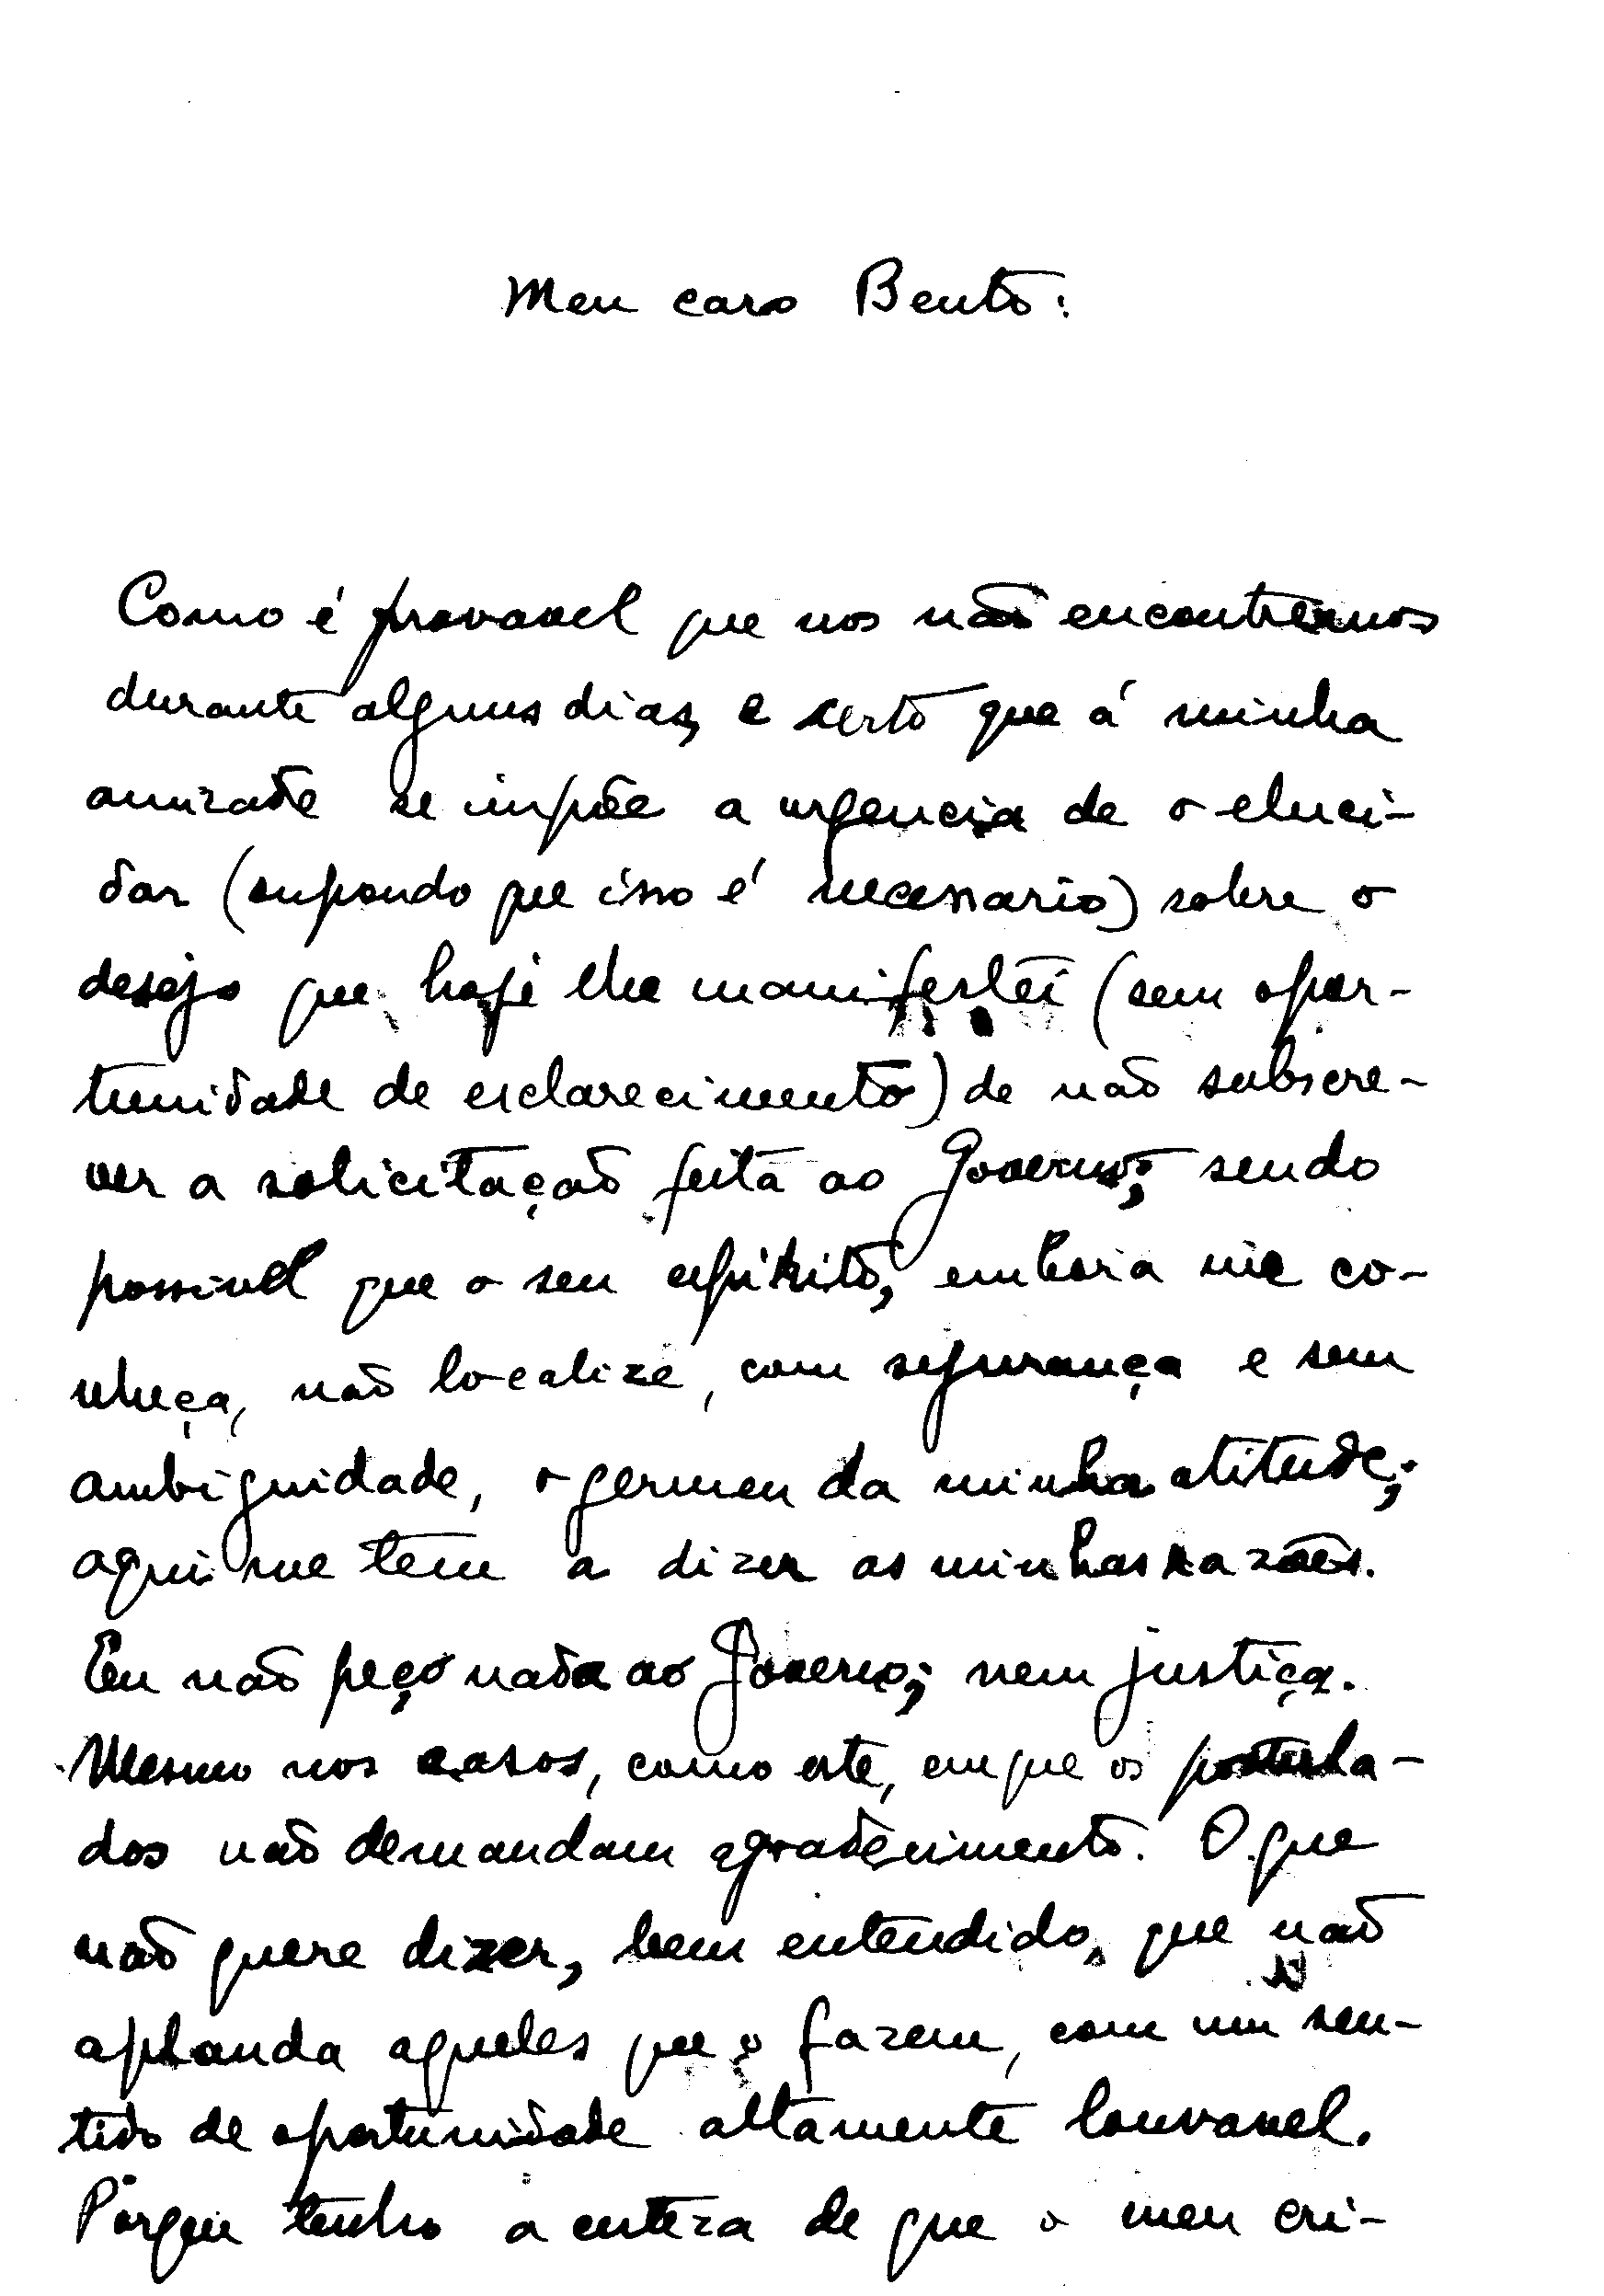 Meu caro Bento:
Como é provavel que nos não encontremos
durante alguns dias, e certo que á minha
amizade se impõe a urgencia de o eluci-
dar (supondo que isso é necessario) sobre o
desejo que hoje lhe manifestei (sem opor-
tunidade de esclarecimento) de não subscre-
ver a solicitação feita ao Governo; sendo
possivel que o seu espirito, embora me co-
nheça, não localize, com segurança e sem
ambiguidade, o germen da minha atitude;
aqui me tem a dizer as minhas razões.
Eu não peço nada ao Governo; nem justiça.
Mesmo nos casos, como este, em que os postula-
dos não demandam agradecimento. O que
não quere dizer, bem entendido, que não
aplauda aqueles que o fazem, com um sen-
tido de oportunidade altamente louvavel.
Porque tenho a certeza de que o meu cri-